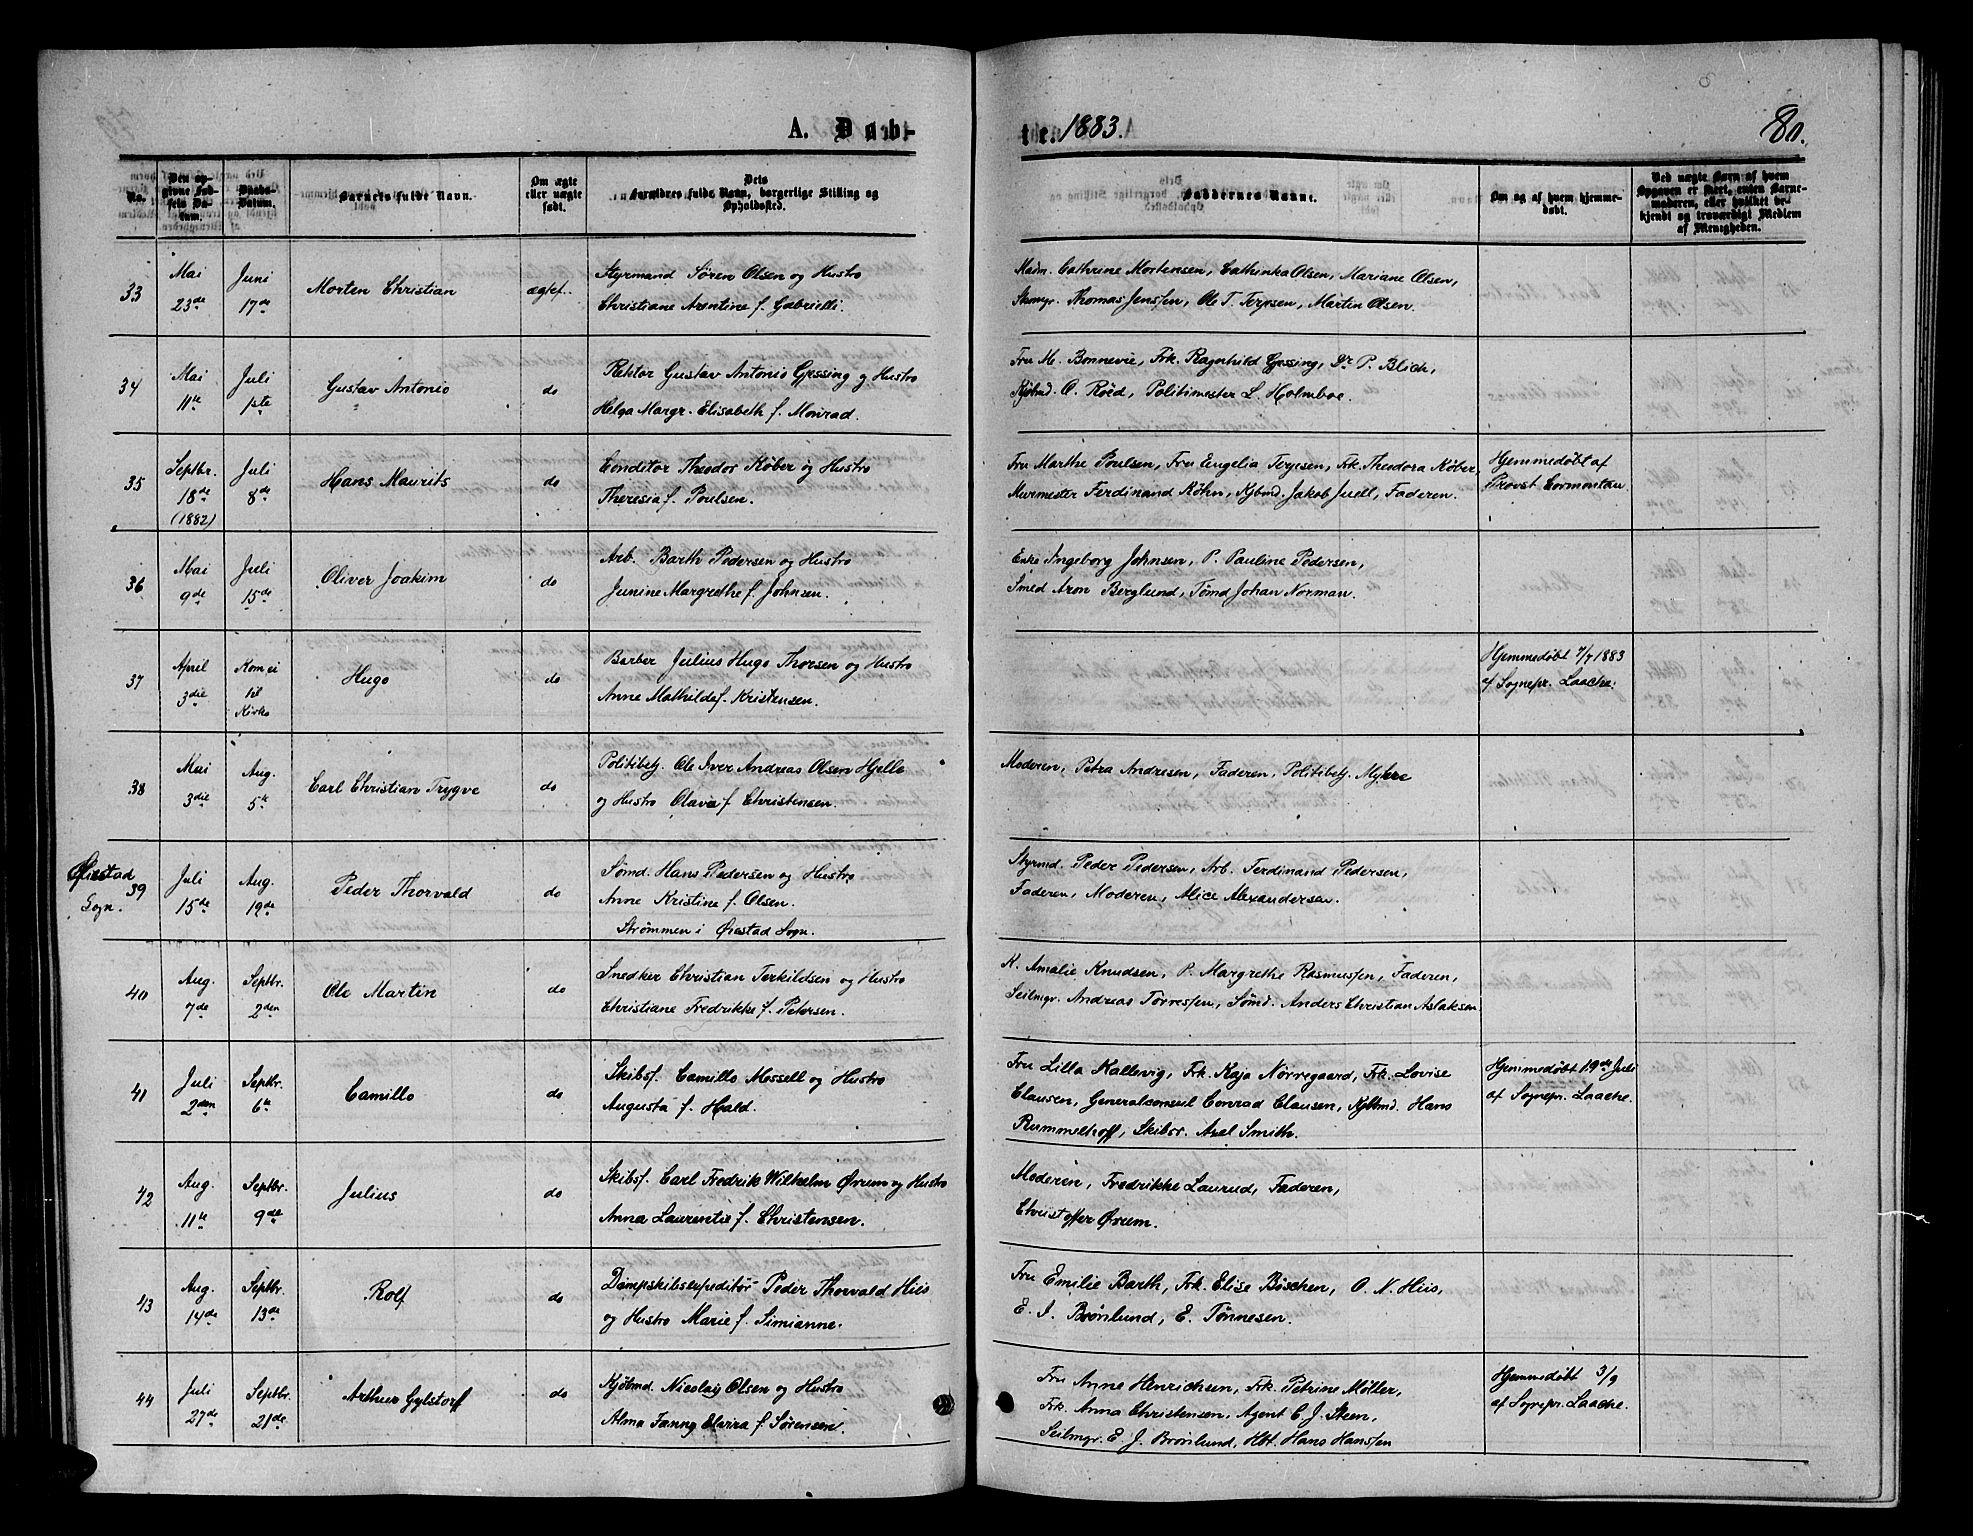 A. Døb-
te. 1883.
80.
No.
Den opgivne Fødsels Datum.
Daabs-Datum.
Barnets fulde Navn.
Om ægte eller uægte født.
Dets Forældres fulde Navn, borgerlige Stilling og Opholdssted.
Faddernes Navne.
Om og af hvem hjemmedøbt.
Ved uægte Børn af hvem Opgaven er skeet, enten Barnemoderen, eller hvilket bekjendt og troværdigt Medlem af Menigheden.
33 Mai 23de Juni 17de Morten Christian ægtef.
Styrmand Søren Olsen og Hustro
Christiane Arentine f. Gabrielli.
Madm. Cathrine Mortensen, Cathinka Olsen, Mariane Olsen,
Skomgr. Thomas Jenssen, Ole T. Terjesen, Martin Olsen.
34 Mai 11te Juli 1ste Gustav Antonio do
Rektor Gustav Antonio Gjessing og Hustro
Helga Margr. Elisabeth f. Monrad.
Fru M. Bonnevie, Frk. Ragnhild Gjessing, Dr. P. Blich,
Kjøbmd. O. Röed, Politimester L. Holmboe.
35 Septbr. 18de (1882) Juli 8de Hans Maurits do
Conditor Theodor Köber og Hustro
Theresia f. Poulsen.
Fru Marthe Poulsen, Fru Engelia Terjesen, Frk. Theodora Köber,
Murmester Ferdinand Köhn, Kjbmd. Jakob Juell, Faderen.
Hjemmedøbt af
Provst Cormontau
36 Mai 9de Juli 15de Oliver Joakim do
Arb. Barth Pedersen og Hustro
Junine Margrethe f. Johnsen.
Enke Ingeborg Johnsen, P. Pauline Pedersen,
Smed Aron Berglund, Tømd Johan Norman.
37 April 3die Kom ei til Kirke Hugo do
Barber Julius Hugo Thorsen og Hustro
Anne Mathilde f. Kristensen.
Hjemmedøbt 7/7 1883
af Sognepr. Laache.
38 Mai 3die Aug. 5te Carl Christian Trygve do
Politibetj. Ole Iver Andreas Olsen Hjelle
og Hustro Olavia f. Christensen.
Moderen, Petra Andresen, Faderen, Politibetj. Myhre
Øiestad
Sogn.
39 Juli 15de Aug. 19de Peder Thorvald do
Sømd. Hans Pedersen og Hustro
Anne Kristine f. Olsen.
Strømmen i Øiestad Sogn.
Styrmd. Peder Pedersen, Arb. Ferdinand Pedersen,
Faderen, Moderen, Alice Alexandersen.
40 Aug. 7de Septbr. 2den Ole Martin do
Snedker Christian Terkildsen og Hustro
Christiane Fredrikke f. Petersen.
K. Amalie Knudsen, P. Margrethe Rasmussen, Faderen,
Seilmgr. Andreas Torressen, Sømd. Anders Christian Aslaksen
41 Juli 2den Septbr. 6te Camillo do
Skibsf. Camillo Mossell og Hustro
Augusta f. Hald.
Fru Lilla Kallevig, Frk. Kaja Nørregaard, Frk. Lovise
Clausen, Generalconsul Conrad Clausen, Kjbmd. Hans
Rummelhoff, Skibsr. Axel Smith.
Hjemmedøbt 19de Juli
af Sognepr. Laache.
42 Aug. 11te Septbr. 9de Julius do
Skibsf. Carl Fredrik Wilhelm Ørum og Hustro
Anna Laurentie f. Christensen.
Moderen, Fredrikke Laurud, Faderen,
Christoffer Ørum.
43 Aug. 14de Septbr. 13de Rolf do
Dampskibsexpeditör Peder Thorvald Hiis
og Hustro Marie f. Simianne.
Fru Emilie Barth, Frk. Elise Böschen, O. N. Hiis,
E. I. Brönlund, E. Tönnesen.
44 Juli 27de Septbr. 21de Arthur Gylstorff do
Kjöbmd. Nicolay Olsen og Hustro
Alma Fanny Elvira f. Sørensen.
Fru Anne Henrichsen, Frk. Petrine Möller,
Frk. Anna Christensen, Agent C. J. Steen,
Seilmgr. E. J. Brönlund, Hbt. Hans Hanssen
Hjemmedøbt 3/9
af Sognepr. Laache.